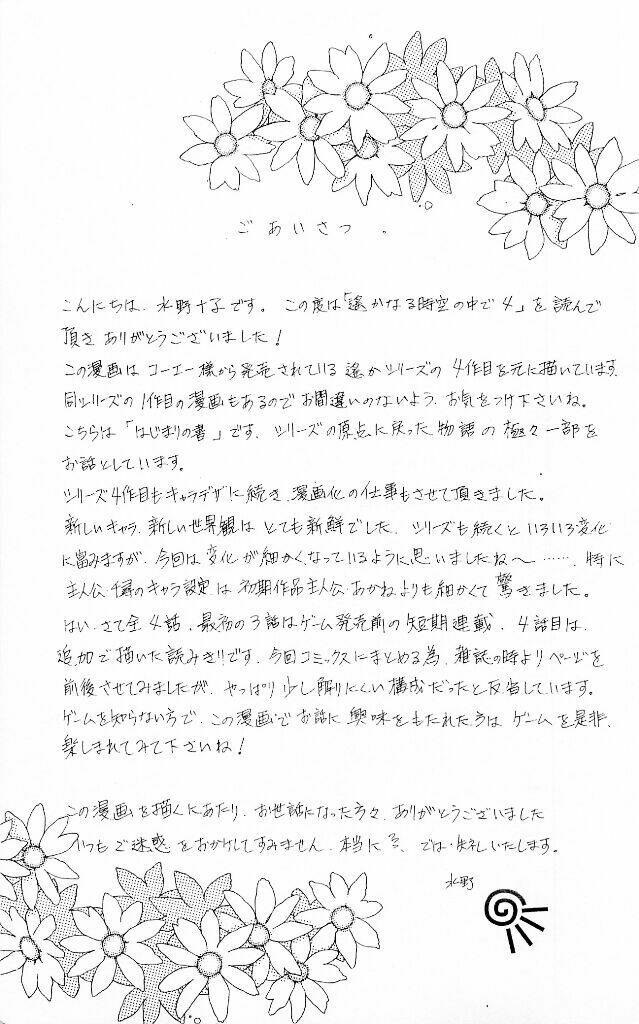 ごあいさつ。
こんにちは、水野十子です。この度は「遙かなる時空の中で4」を読んで
頂きありがとうございました!
この漫画はコーエー様から発売されている遙かシリーズの4作目を元に描いています。
同シリーズの1作目の漫画もあるのでお間違いのないよう、お気をつけ下さいね。
こちらは「はじまりの書」です、シリーズの原点に戻った物語の極々一部を
お話としています。
シリーズ4作目もキャラデザに続き、漫画化の仕事もさせて頂きました。
新しいキャラ、新しい世界観はとても新鮮でした、シリーズも続くといろいろ変化
に富みますが、今回は変化が細かくなっているように思いましたね～……、特に
主人公・千尋のキャラ設定は初期作品主人公・あかねよりも細かくて驚きました。
はい、さて全4話、最初の3話はゲーム発売前の短期連載、4話目は、
追加で描いた読みきりです、今回コミックスにまとめる為、雑誌の時よりページを
前後させてみましたが、やっぱり少し解りにくい構成だったと反省しています。
ゲームを知らない方で、この漫画でお話に興味をもたれた方はゲームを是非、
楽しまれてみて下さいね!
この漫画を描くにあたり、お世話になった方々、ありがとうございました
いつもご迷惑をおかけしてすみません、本当に、では・失礼いたします。
水野